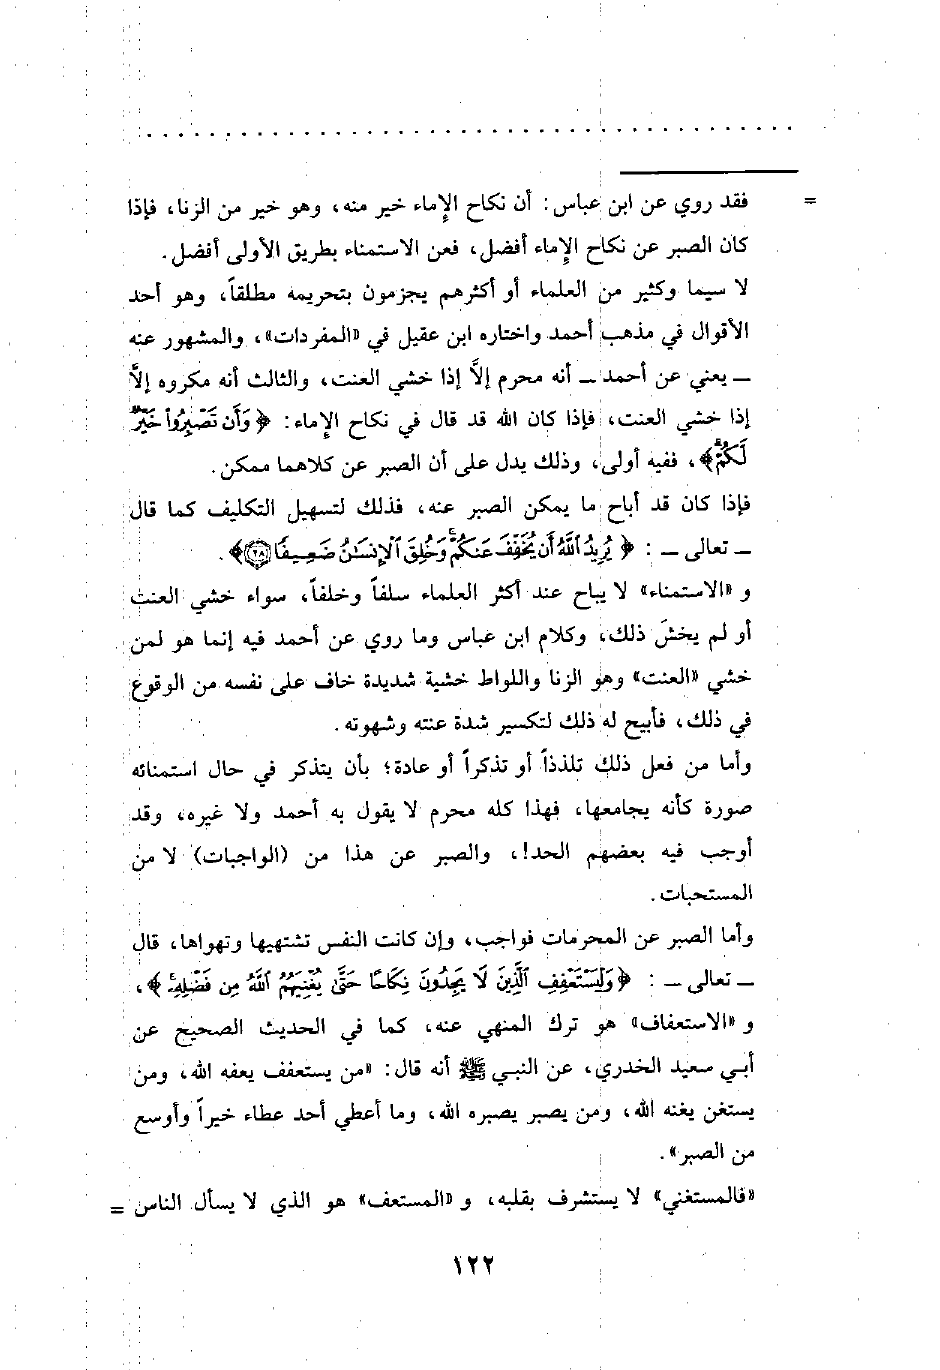 = فقد روي عن ابن عباس: أن نكاح الإماء خير منه، وهو خير من الزنا، فإذا
كان الصبر عن نكاح الإماء أفضل، فعن الاستمناء بطريق الأولى أفضل.
لا سيما وكثير من العلماء أو أكثرهم يجزمون بتحريمه مطلقاً، وهو أحد
الأقوال في مذهب أحمد واختاره ابن عقيل في «المفردات»، والمشهور عنه
ــ يعني عن أحمد ــ أنه محرم إلاَّ إذا خشي العنت، والثالث أنه مكروه إلاَّ
إذا خشي العنت، فإذا كان الله قد قال في نكاح الإماء: ﴿وَأَن تَصْبِرُوا۟ خَيْرٌ
لَّكُمْ ۗ﴾، ففيه أولى، وذلك يدل على أن الصبر عن كلاهما ممكن.
فإذا كان قد أباح ما يمكن الصبر عنه، فذلك لتسهيل التكليف كما قال
ــ تعالى ــ: ﴿يُرِيدُ ٱللَّهُ أَن يُخَفِّفَ عَنكُمْ ۚ وَخُلِقَ ٱلْإِنسَـٰنُ ضَعِيفًا ۝٢٨﴾.
و «الاستمناء» لا يباح عند أكثر العلماء سلفاً وخلفاً، سواء خشي العنت
أو لم يخشَ ذلك، وكلام ابن عباس وما روي عن أحمد فيه إنما هو لمن
خشي «العنت» وهو الزنا واللواط خشية شديدة خاف على نفسه من الوقوع
في ذلك، فأبيح له ذلك لتكسير شدة عنته وشهوته.
وأما من فعل ذلك تلذذاً أو تذكراً أو عادة؛ بأن يتذكر في حال استمنائه
صورة كأنه يجامعها، فهذا كله محرم لا يقول به أحمد ولا غيره، وقد
أوجب فيه بعضهم الحد!، والصبر عن هذا من (الواجبات) لا من
المستحبات.
وأما الصبر عن المحرمات فواجب، وإن كانت النفس تشتهيها وتهواها، قال
ــ تعالى ــ: ﴿وَلْيَسْتَعْفِفِ ٱلَّذِينَ لَا يَجِدُونَ نِكَاحًا حَتَّىٰ يُغْنِيَهُمُ ٱللَّهُ مِن فَضْلِهِۦ ۗ﴾،
و «الاستعفاف» هو ترك المنهي عنه، كما في الحديث الصحيح عن
أبي سعيد الخدري، عن النبي ﷺ أنه قال: «من يستعفف يعفه الله، ومن
يستغن يغنه الله، ومن يصبر يصبره الله، وما أعطي أحد عطاء خيراً وأوسع
من الصبر».
«فالمستغني» لا يستشرف بقلبه، و «المستعف» هو الذي لا يسأل الناس =
١٢٢